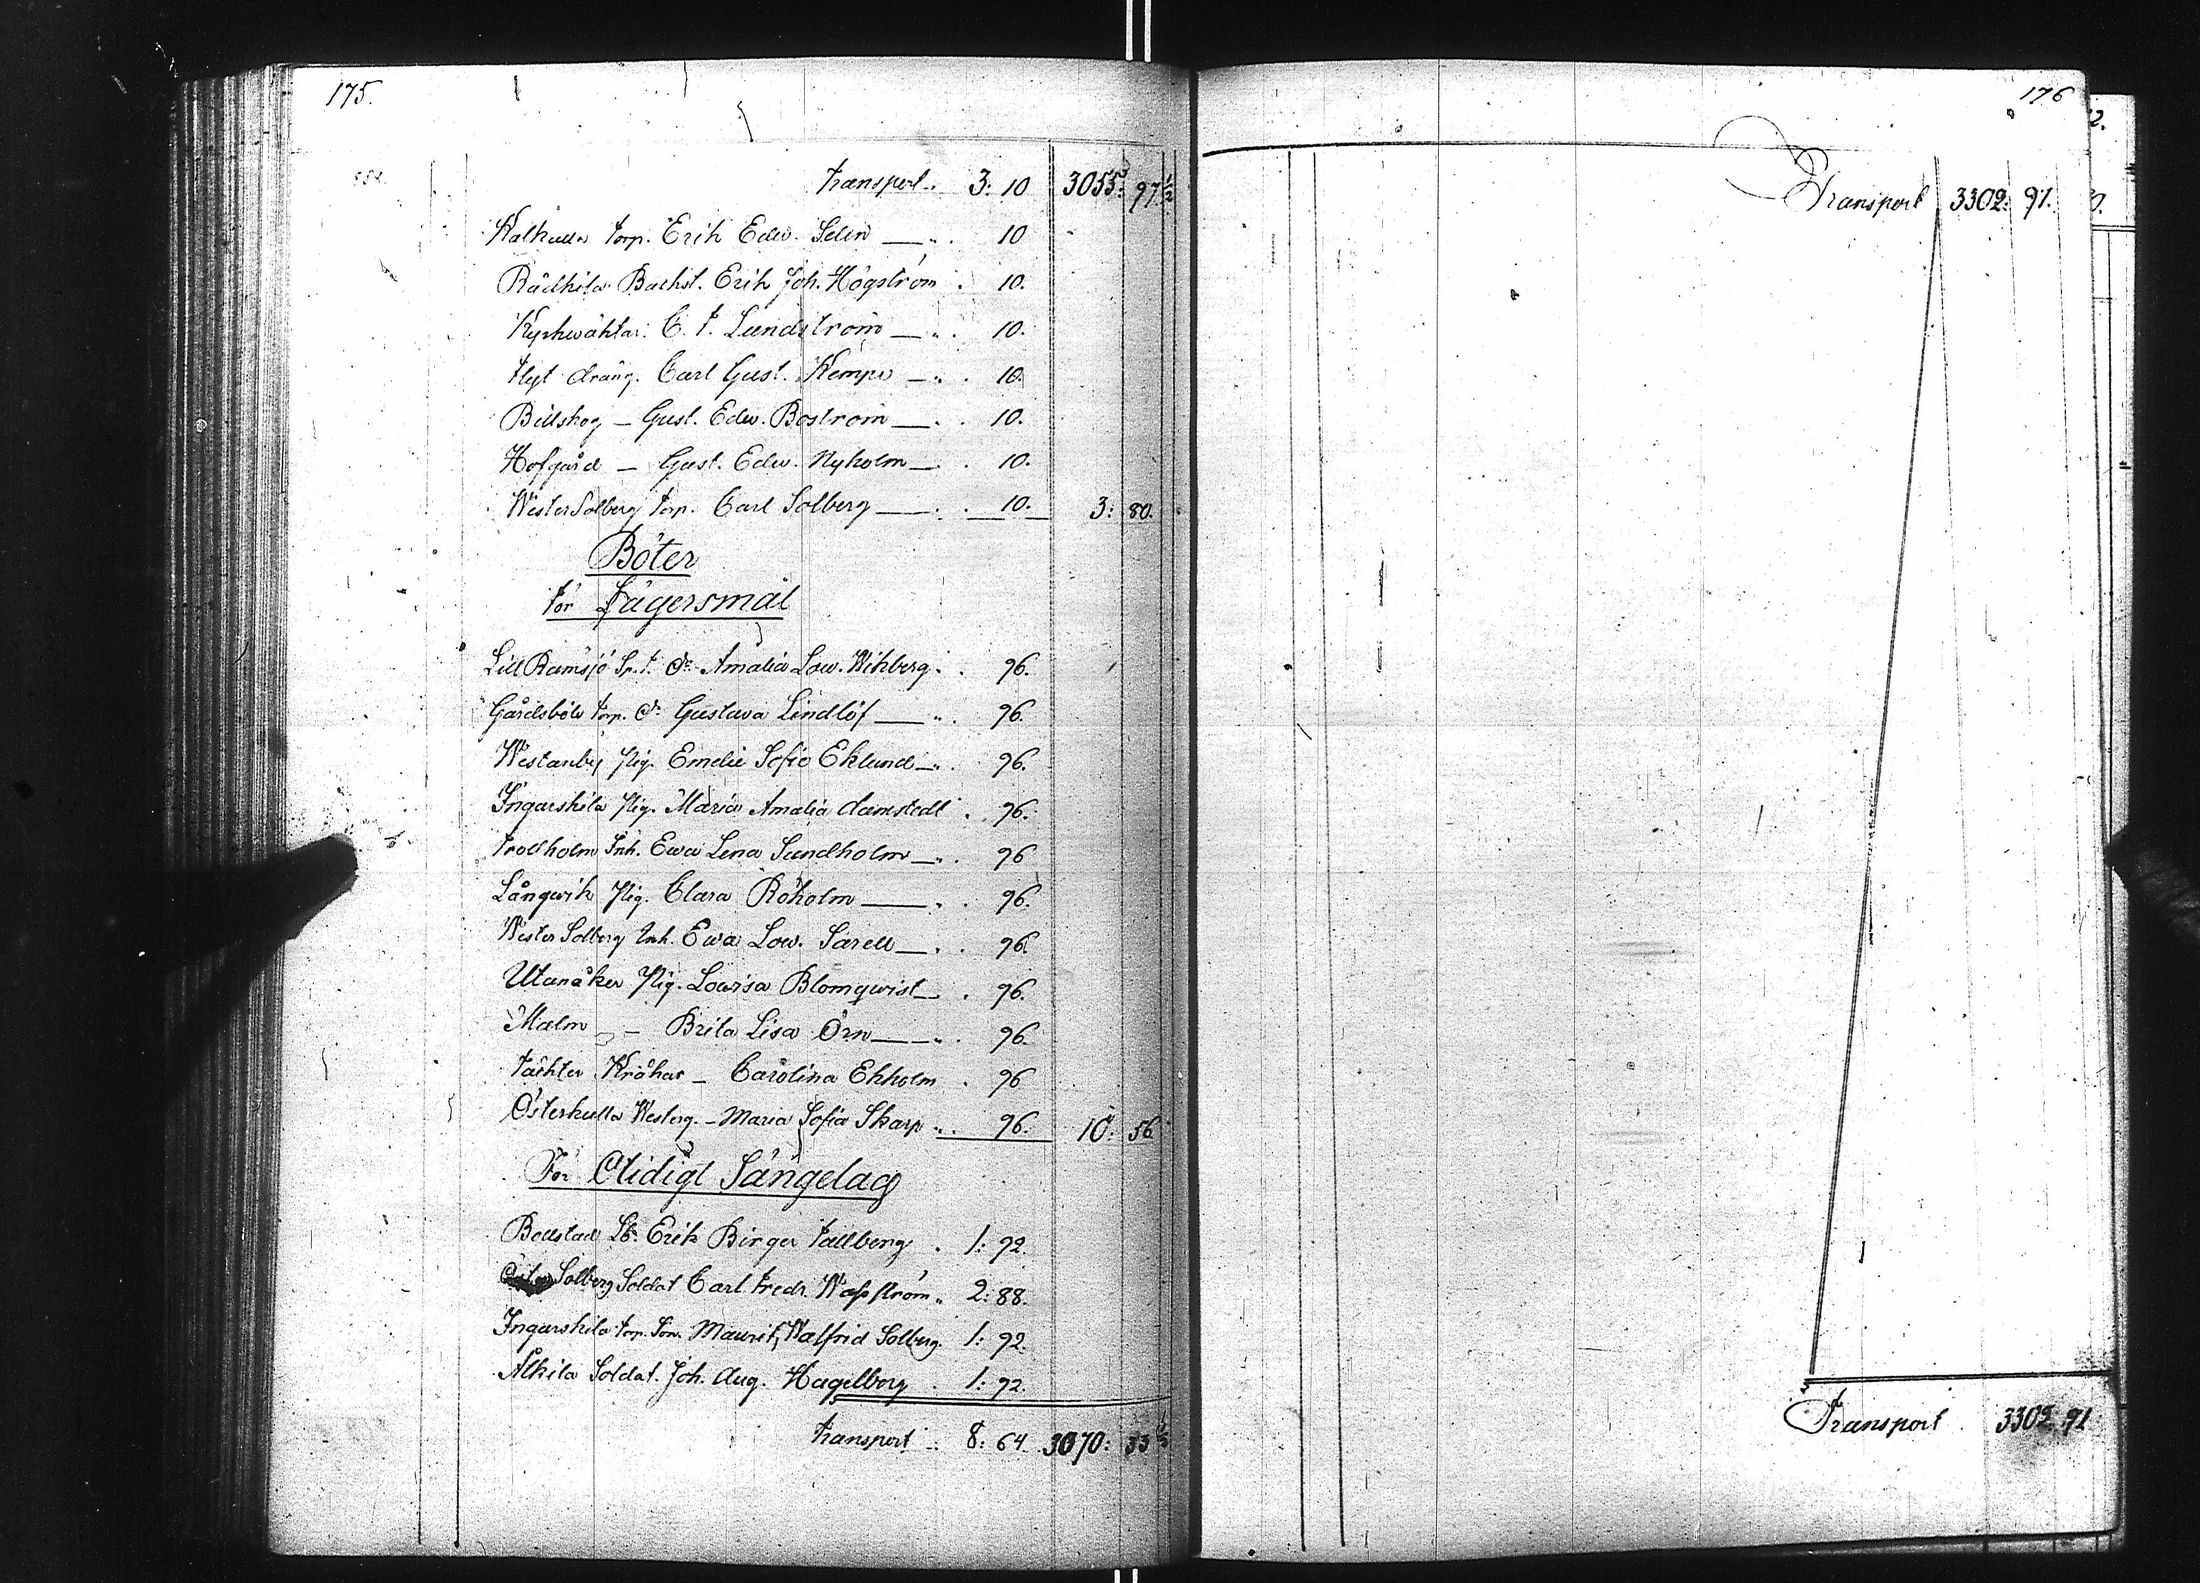 175.
Transport .. 3: 10 3055: 97 1/2
Kalkulla torp. Erik Edw. Selin — „ . 10
Rådkila Backst. Erik Joh. Högström . 10.
Kyrkwäktar. C. F. Lundström — „ . 10.
Flyt dräng. Carl Gust. Kempe — „ . 10.
Billskog — Gust. Edw. Boström — . . 10.
Hofgård — Gust. Edw. Nyholm — . . 10.
WesterSolberg torp. Carl Solberg — . . 10. 3: 80.
Böter
för Lägersmål
Lill Ramsjö Sp. t. dr Amalia Low. Wikberg . . 96.
Gårdsböle torp. dr Gustava Lindlöf — „ . 96.
Westanby Pig. Emelie Sofie Eklund — „ . 96.
Ingarskila Pig. Maria Amalia damstedt . . 96.
Trollholm Inh. Ewa Lena Sundholm — „ . 96
Långwik Pig. Clara Röholm — „ . 96.
Wester Solberg Inh. Ewa Low. Sarell — . . 96.
Utanåker Pig. Lowisa Blomqwist — . 96.
Malm — Brita Lisa Örn — „ . 96.
Täckter Kråkas — Carolina Ekholm . 96
Österkulla Westerg. — Maria Sofia Skarp „ . 96. 10: 56
För Otidigt Sängelag
Bollstad Sbr Erik Birger Tallberg . 1: 92.
Öster Solberg Soldat Carl Fredr. Wasström „ 2: 88.
Ingarskila torp. Son. Maurits Walfrid Solberg. 1: 92.
Alkila Soldat. Joh. Aug. Hagelborg . 1: 92.
Transport .. 8: 64. 3070: 33 1/2
176
Transport 3302: 91.
Transport . 3302: 91